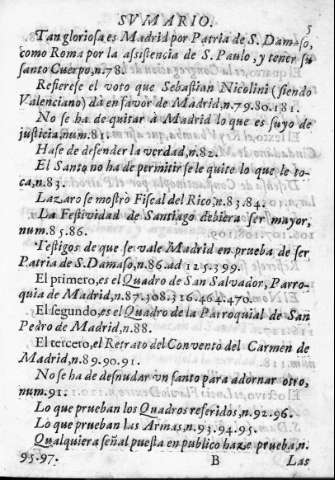 SVMARIO.
5
Tan gloriosa es Madrid por Patria de S. Damaso,
como Roma por la asistencia de S. Paulo, y tener su
santo Cuerpo, n.78.
Refierese el voto que Sebastian Nicolini (siendo
Valenciano) dà en favor de Madrid, n.79.80.181.
No se ha de quitar à Madrid lo que es suyo de
justicia, num.81.
Hase de defender la verdad, n.82.
El Santo no ha de permitir se le quite lo que le to-
ca, n.83.
Lazaro se mostrò Fiscal del Rico, n.83.84.
La Festividad de Santiago debiera ser mayor,
num.85.86.
Testigos de que se vale Madrid en prueba de ser
Patria de S. Damaso, n.86. ad 125.399.
El primero, es el Quadro de San Salvador, Parro-
quia de Madrid, n.87.308.316.464.470.
El segundo, es el Quadro de la Parroquial de San
Pedro de Madrid, n.88.
El tercero, el Retrato del Convento del Carmen de
Madrid, n.89.90.91.
No se ha de desnudar vn santo para adornar otro,
num.91.
Lo que prueban los Quadros referidos, n.92.96.
Lo que prueban las Armas, n.93.94.95.
Qualquiera señal puesta en publico haze prueba, n.
95.97.
B
Las